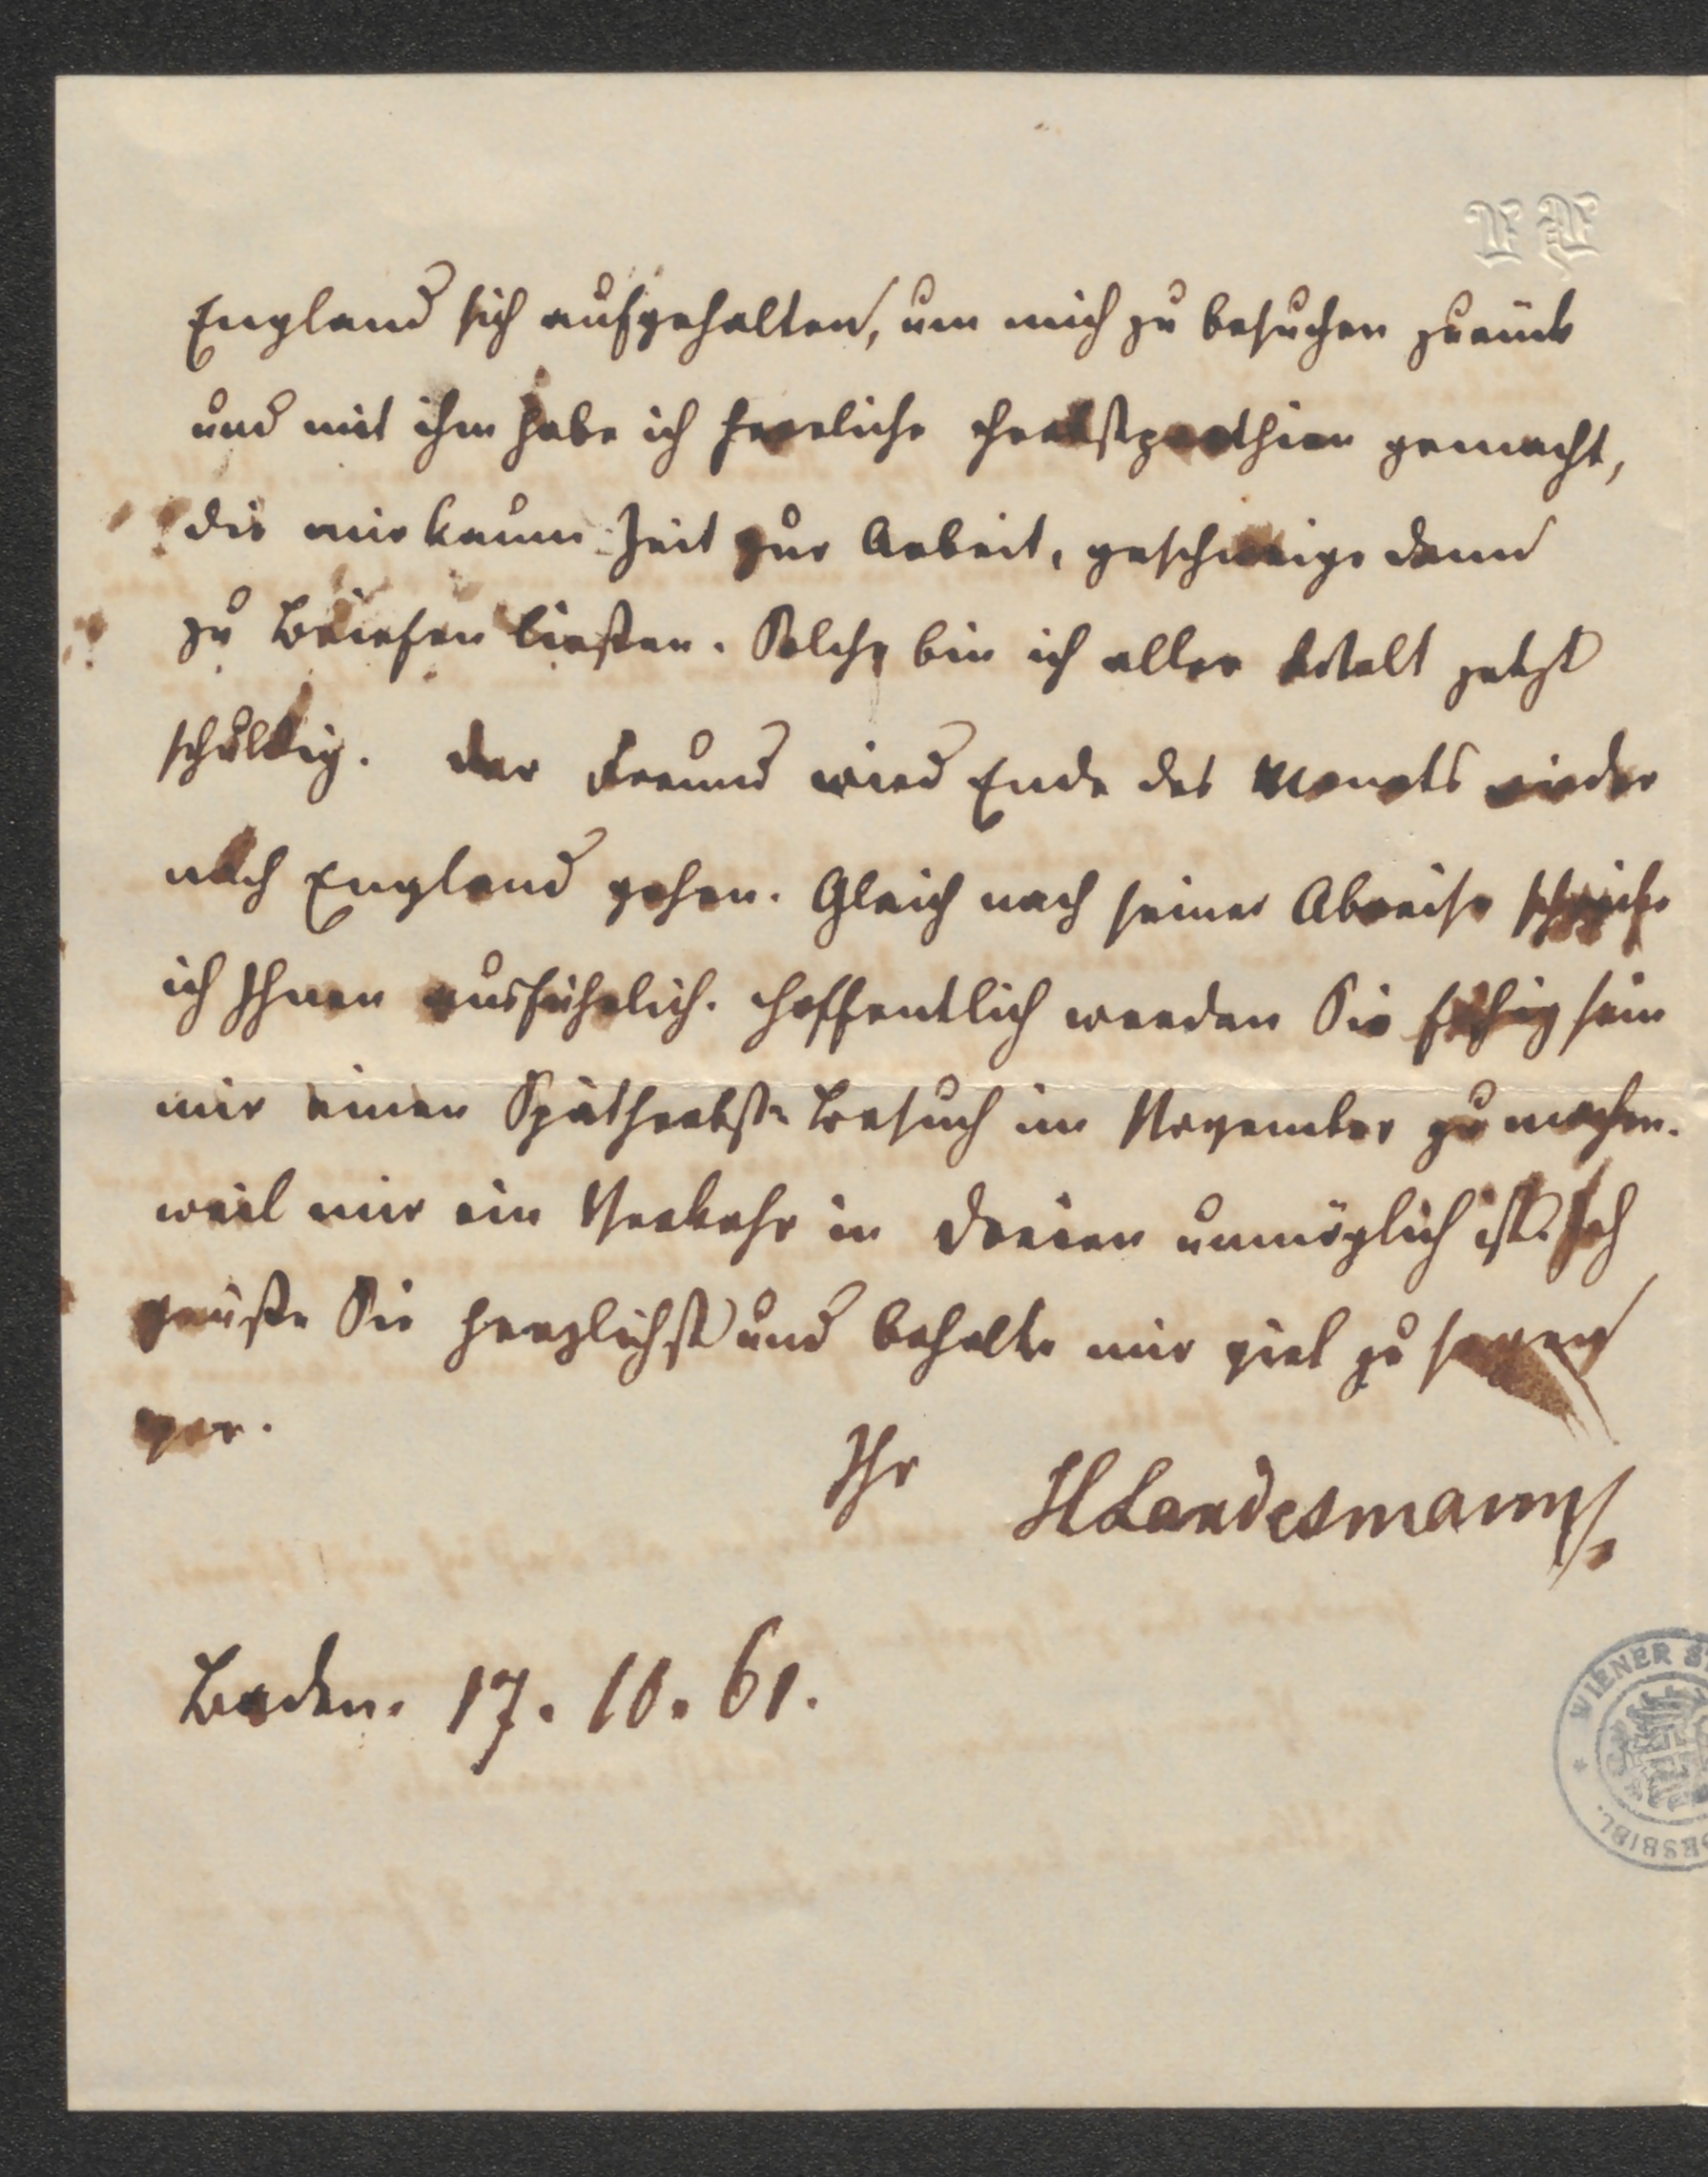 England sich aufgehalten, um mich zu besuchen zurück
und mit ihm habe ich herrliche Herbstparthien gemacht,
die mir kaum Zeit zur Arbeit, geschweige denn
zu Briefen ließen. Solche bin ich aller Welt jetzt
schuldig. Der Freund wird Ende des Monats wieder
nach England gehen. Gleich nach seiner Abreise schreibe
ich Ihnen ausführlich. Hoffentlich werden Sie fähig sein
mir einen Spätherbst-Besuch im November zu machen.
weil mir ein Verkehr in Dreien unmöglich ist. Ich
grüße Sie herzlichst und behalte mir viel zu sagen
vor.
Ihr HLandesmann
Baden. 17. 10. 61.
WIENER ST